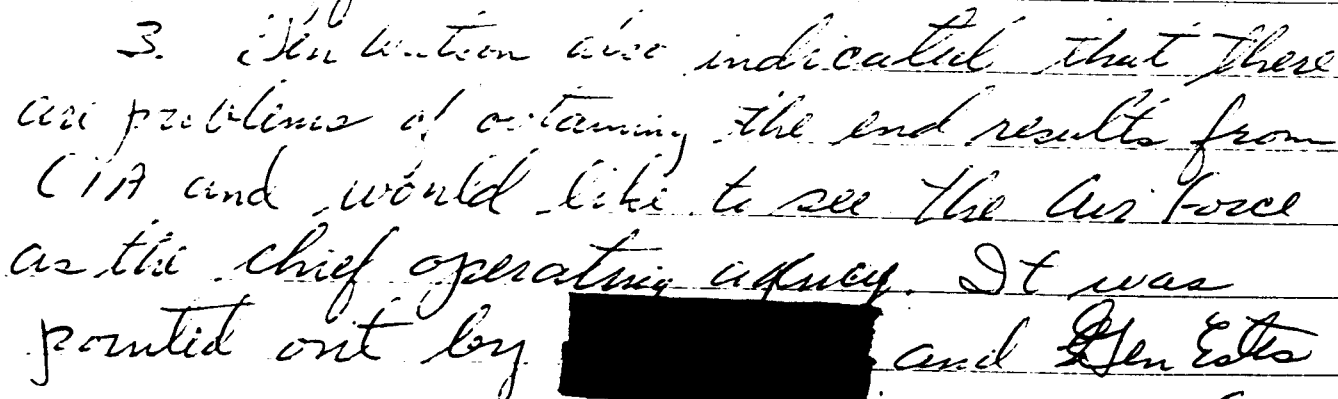 3. Gen Watson also indicated that there
are problems of obtaining the end results from
CIA and would like to see the Air Force
as the chief operating agency. It was
pointed out by and Gen Estes